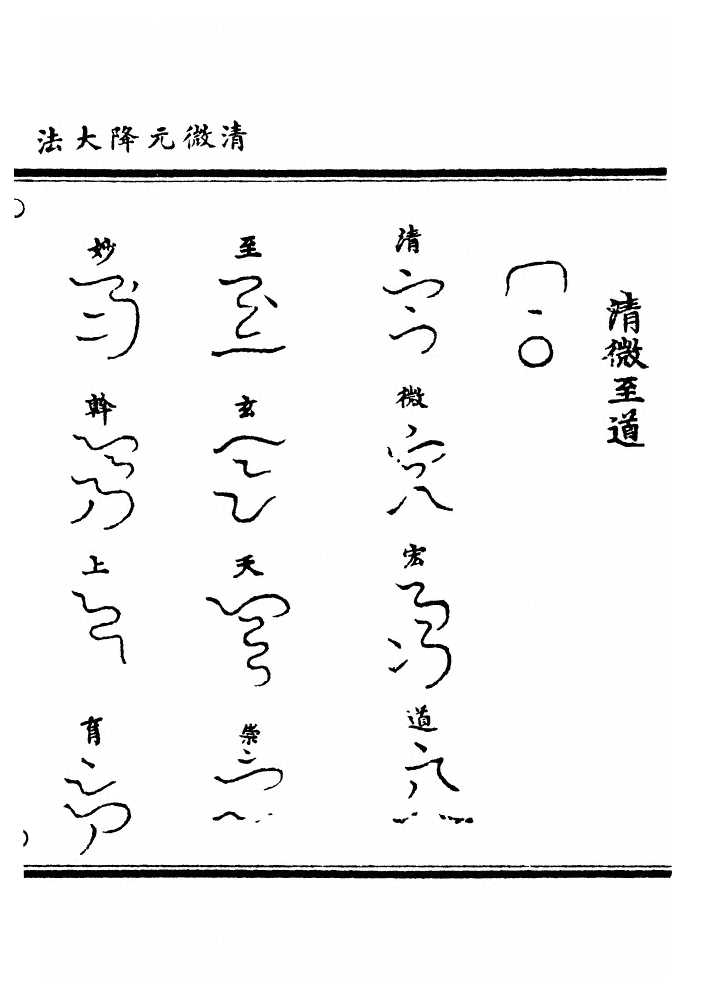 清微元降大法
清微至道
清微宏道
至玄天崇
妙幹上育